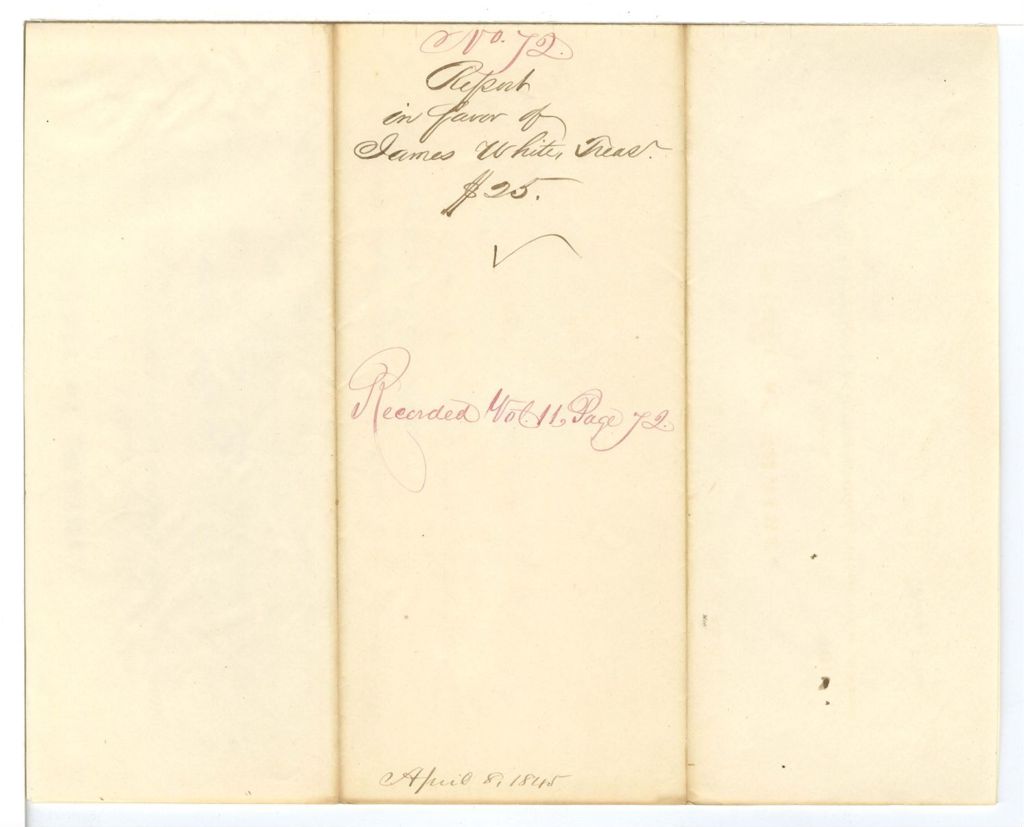 No. 72.
Report
in favor of
James White, Treas.
$25.
Recorded Vol. 11, Page 72.
April 8, 1845